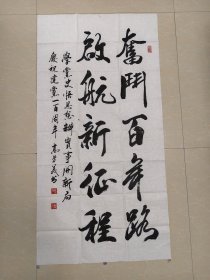 奮鬥百年路
啟航新征程
學黨史悟思想辦實事開新局
慶祝建黨一百周年